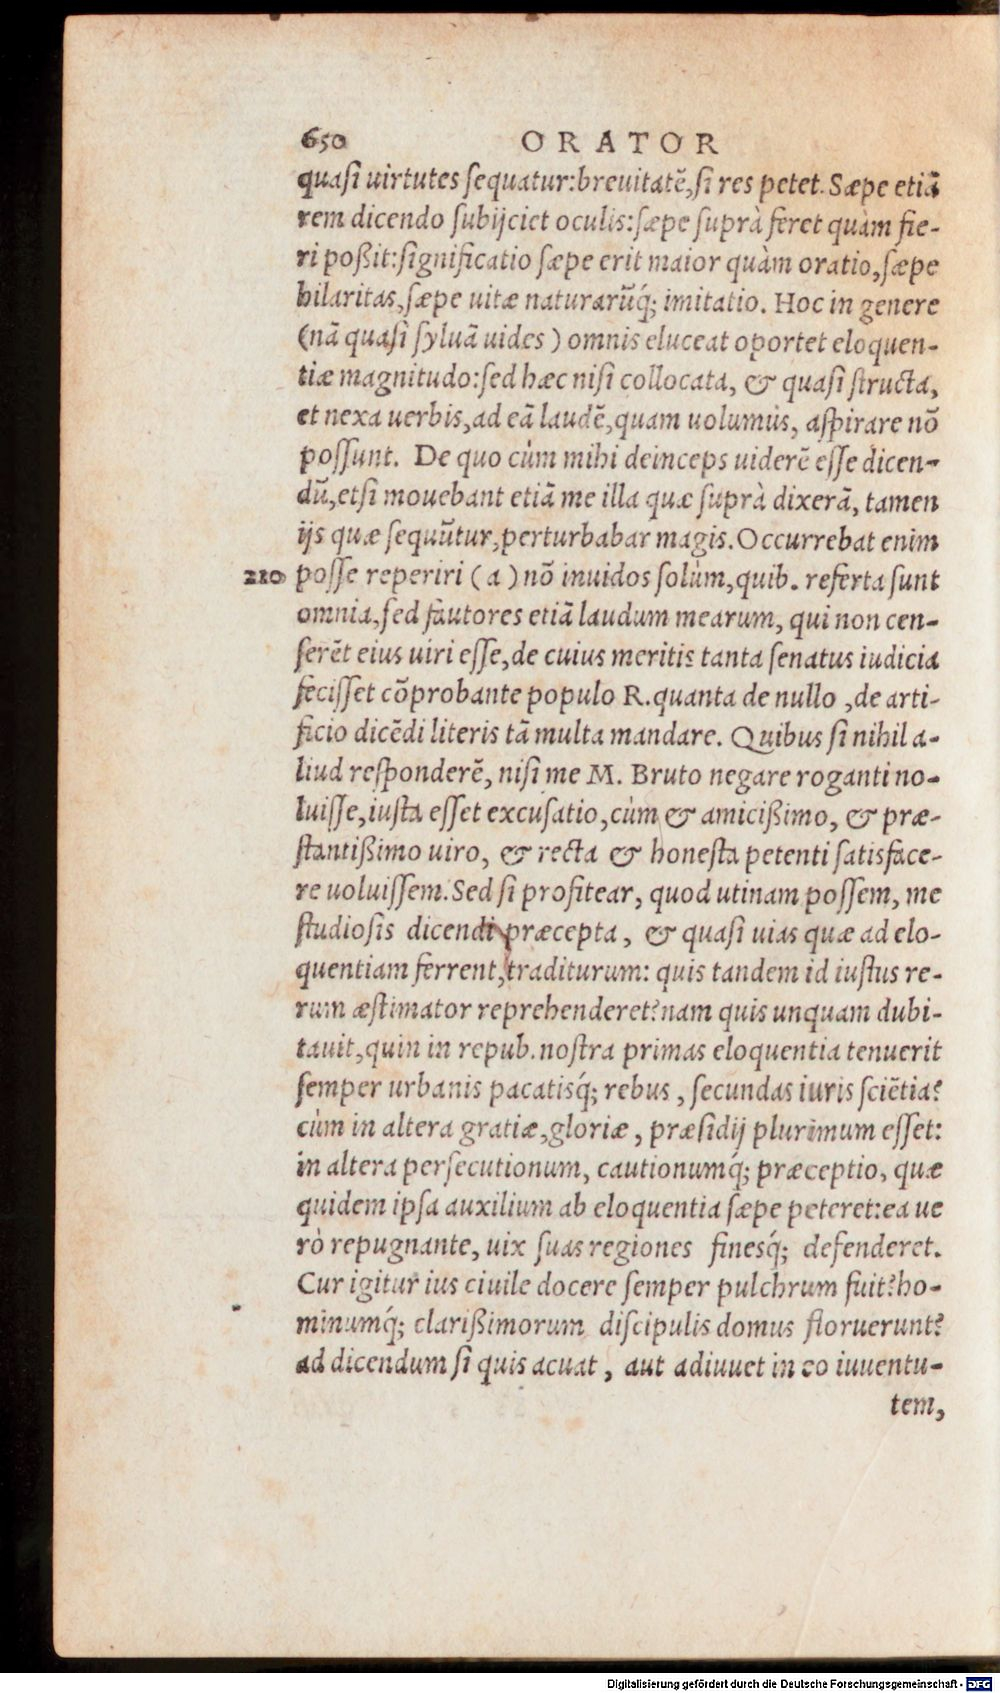 650 ORATOR
quasi uirtutes sequatur:breuitatē,si res petet. Sæpe etiā
rem dicendo subijciet oculis:sæpe suprà feret quàm fie-
ri poßit:significatio sæpe erit maior quàm oratio,sæpe
hilaritas,sæpe uitæ naturarūq́; imitatio. Hoc in genere
(nā quasi syluā uides) omnis eluceat oportet eloquen-
tiæ magnitudo:sed hæc nisi collocata, & quasi structa,
et nexa uerbis,ad eā laudē,quam uolumus, aspirare nō
possunt. De quo cùm mihi deinceps uiderē esse dicen-
dū,etsi mouebant etiā me illa quæ suprà dixerā, tamen
ijs quæ sequūtur,perturbabar magis.Occurrebat enim
210 posse reperiri (a) nō inuidos solùm,quib. referta sunt
omnia,sed fautores etiā laudum mearum, qui non cen-
serēt eius uiri esse,de cuius meritis tanta senatus iudicia
fecisset cōprobante populo R.quanta de nullo ,de arti-
ficio dicēdi literis tā multa mandare. Quibus si nihil a-
liud responderē, nisi me M. Bruto negare roganti no-
luisse,iusta esset excusatio,cùm & amicißimo, & præ-
stantißimo uiro, & recta & honesta petenti satisface-
re uoluissem.Sed si profitear, quod utinam possem, me
studiosis dicendi præcepta, & quasi uias quæ ad elo-
quentiam ferrent,traditurum: quis tandem id iustus re-
rum æstimator reprehenderet?nam quis unquam dubi-
tauit,quin in repub.nostra primas eloquentia tenuerit
semper urbanis pacatisq́; rebus , secundas iuris sciētia?
cùm in altera gratiæ,gloriæ , præsidij plurimum esset:
in altera persecutionum, cautionumq́; præceptio, quæ
quidem ipsa auxilium ab eloquentia sæpe peteret:ea ue
rò repugnante, uix suas regiones finesq́; defenderet.
Cur igitur ius ciuile docere semper pulchrum fuit?ho-
minumq́; clarißimorum discipulis domus floruerunt?
ad dicendum si quis acuat , aut adiuuet in eo iuuentu-
tem,
Digitalisierung gefördert durch die Deutsche Forschungsgemeinschaft - DFG